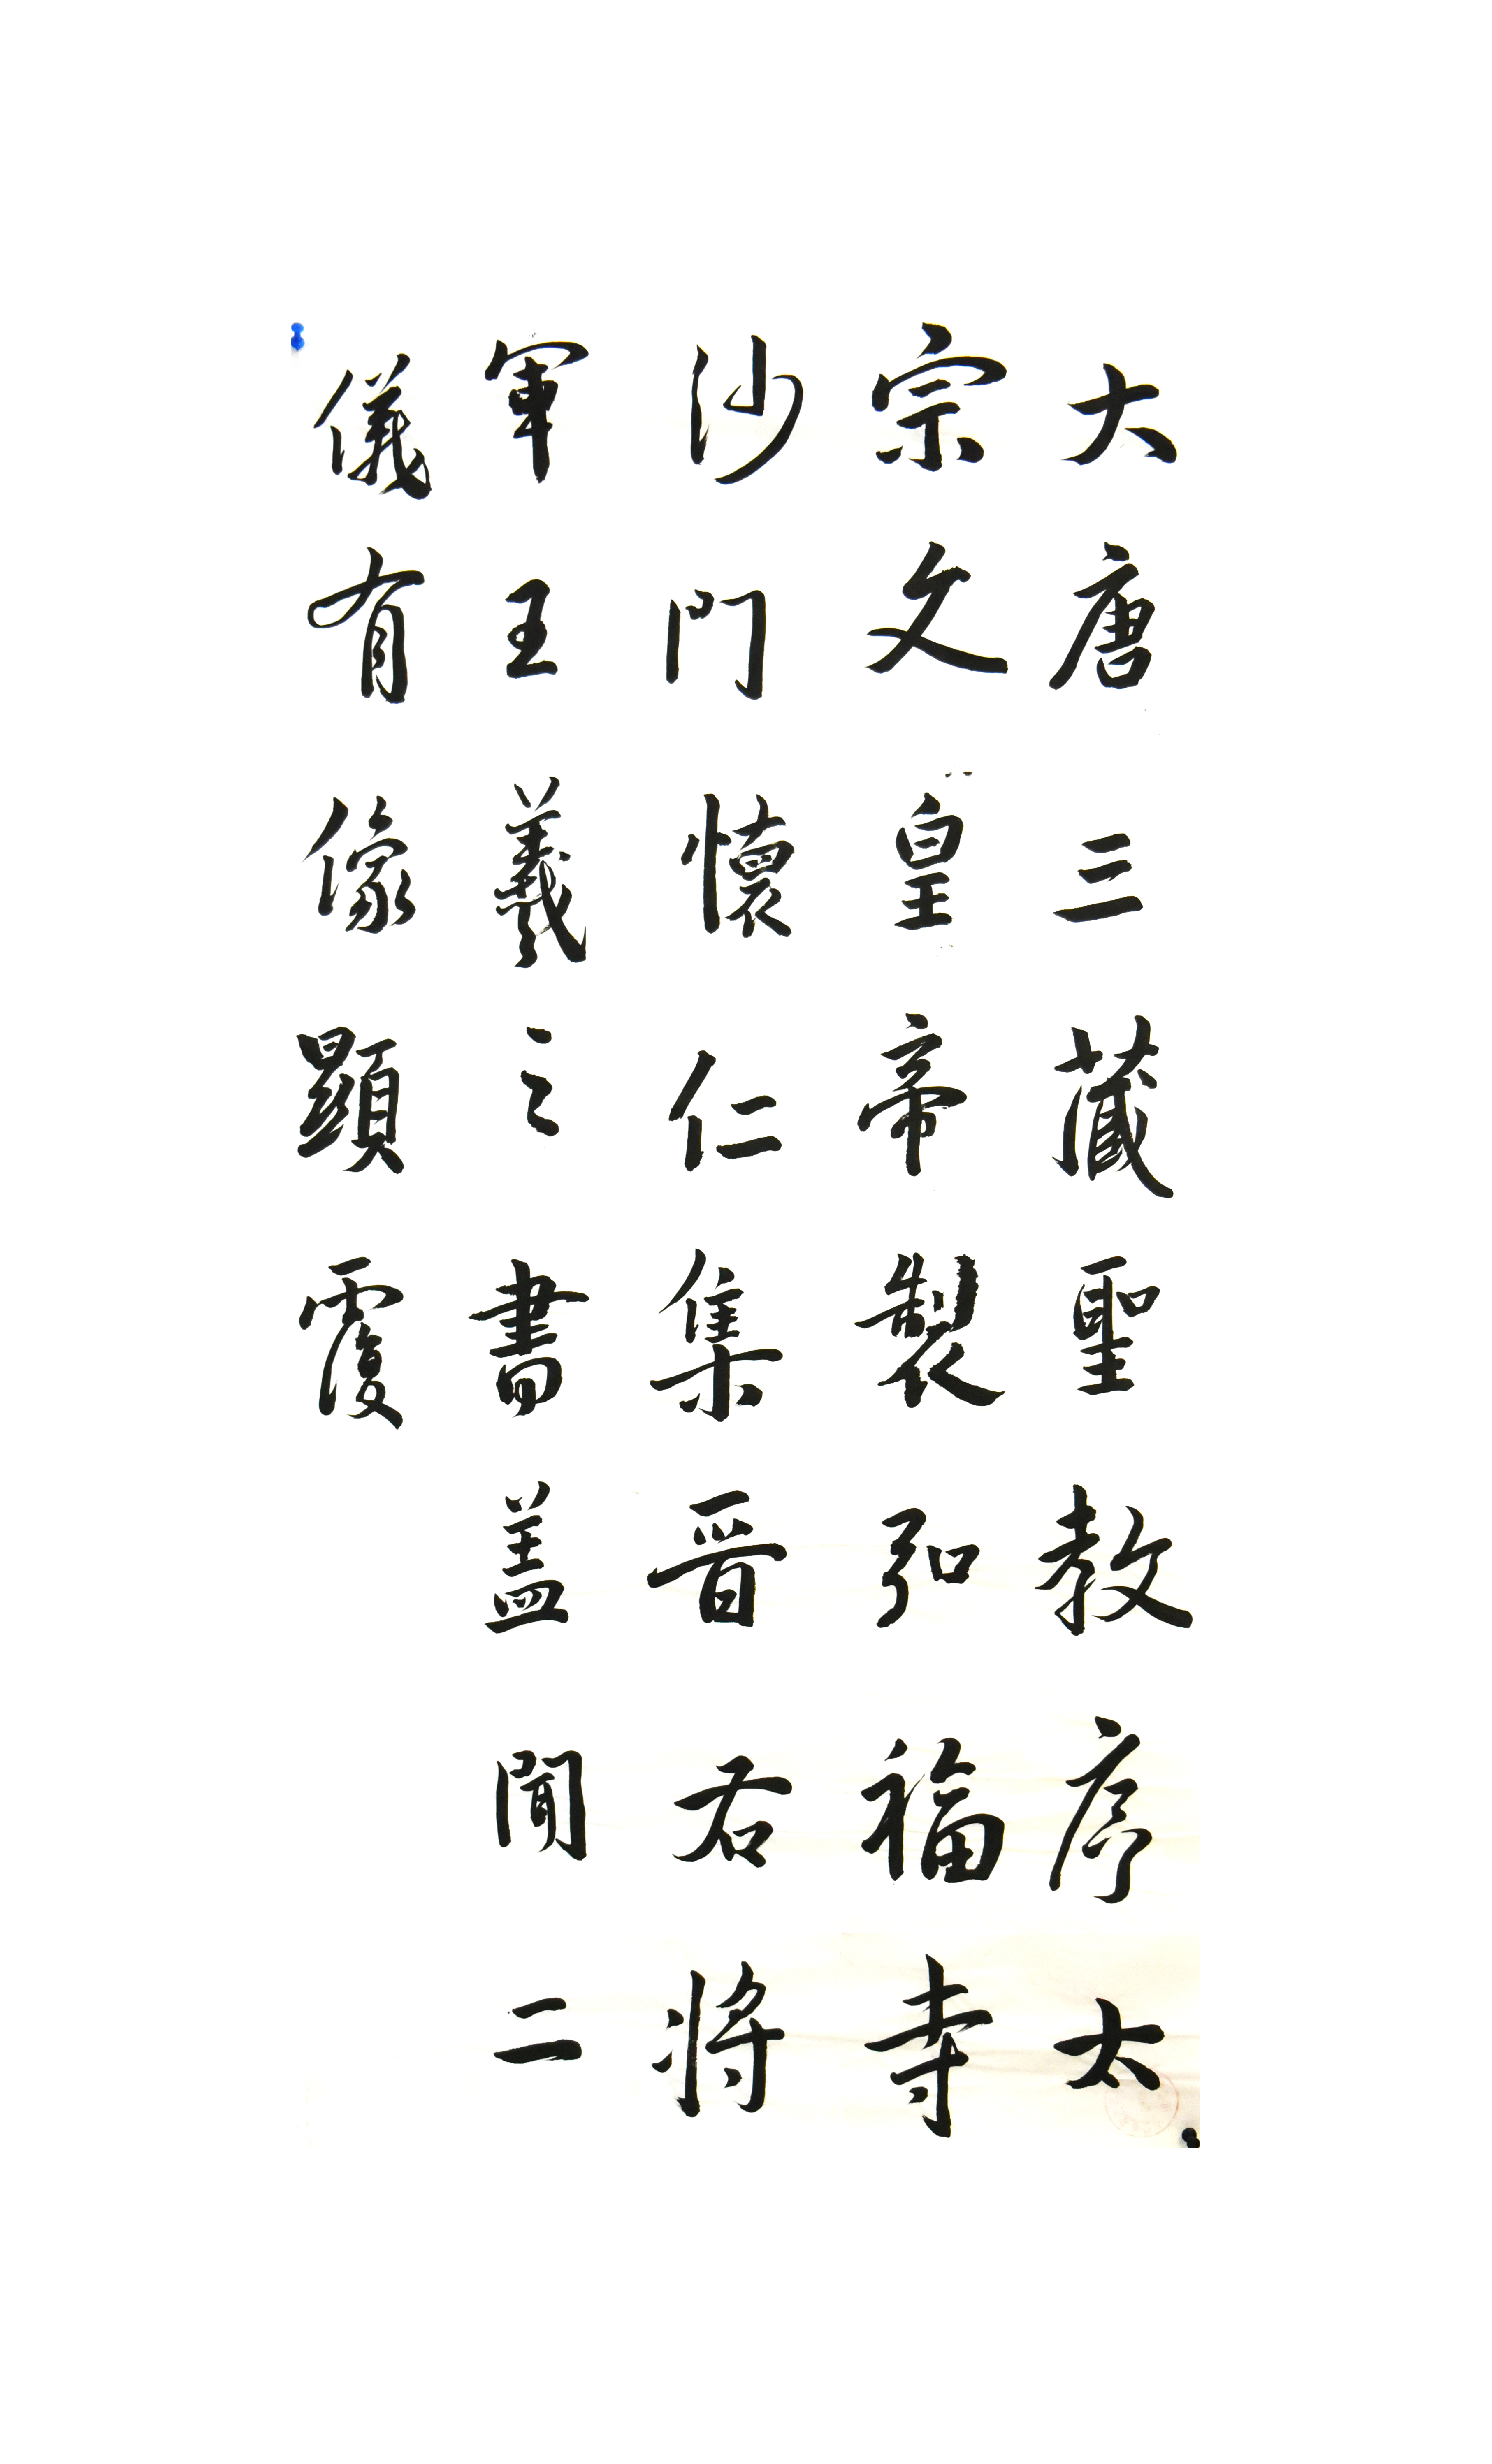 大唐三藏聖教序太
宗文皇帝製弘福寺
沙門懷仁集晉右將
軍王羲之書蓋聞二
儀有像顯覆